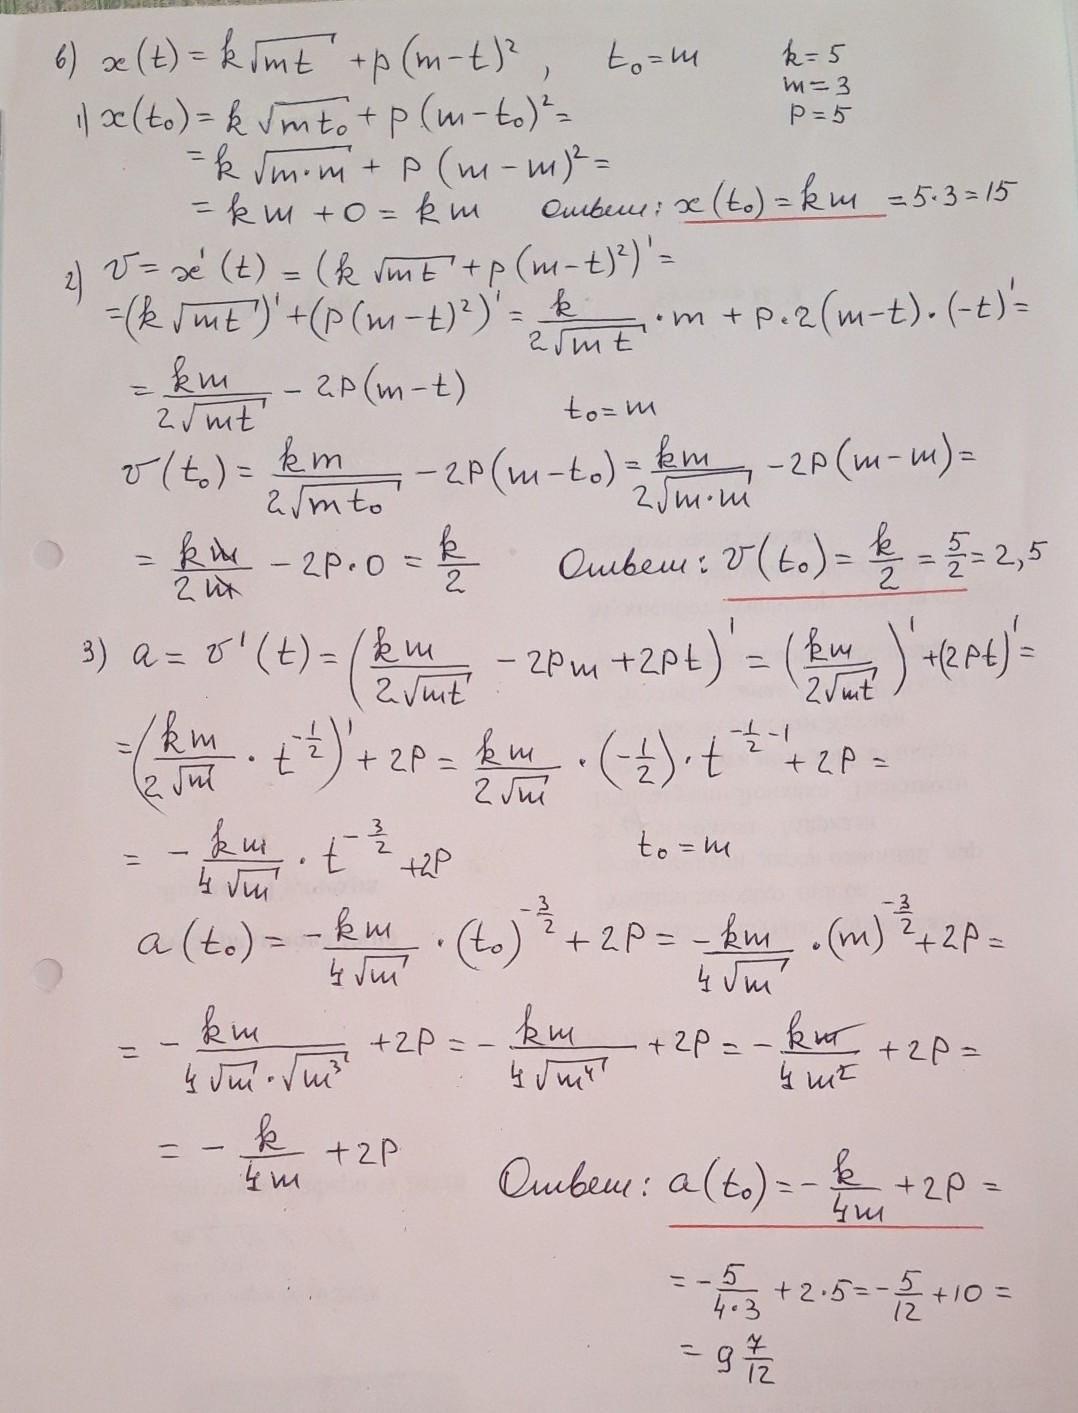 в) x(t) = k√(mt) + p(m-t)², t₀ = m k = 5
m = 3
1) x(t₀) = k√(mt₀) + p(m-t₀)² = p = 5
= k√(m·m) + p(m-m)² =
= km + 0 = km Ответ: x(t₀) = km = 5·3 = 15
2) v = x'(t) = (k√(mt) + p(m-t)²)' =
= (k√(mt))' + (p(m-t)²)' = k/(2√(mt)) · m + p·2(m-t)·(-t)' =
= km/(2√(mt)) - 2p(m-t) t₀ = m
v(t₀) = km/(2√(mt₀)) - 2p(m-t₀) = km/(2√(m·m)) - 2p(m-m) =
= km/(2m) - 2p·0 = k/2 Ответ: v(t₀) = k/2 = 5/2 = 2,5
3) a = v'(t) = (km/(2√(mt)) - 2pm + 2pt)' = (km/(2√(mt)))' + (2pt)' =
= (km/(2√m) · t^(-1/2))' + 2p = km/(2√m) · (-1/2) · t^(-1/2-1) + 2p =
= - km/(4√m) · t^(-3/2) + 2p t₀ = m
a(t₀) = - km/(4√m) · (t₀)^(-3/2) + 2p = - km/(4√m) · (m)^(-3/2) + 2p =
= - km/(4√m·√(m³)) + 2p = - km/(4√(m⁴)) + 2p = - km/(4m²) + 2p =
= - k/(4m) + 2p
Ответ: a(t₀) = - k/(4m) + 2p =
= - 5/(4·3) + 2·5 = - 5/12 + 10 =
= 9 7/12